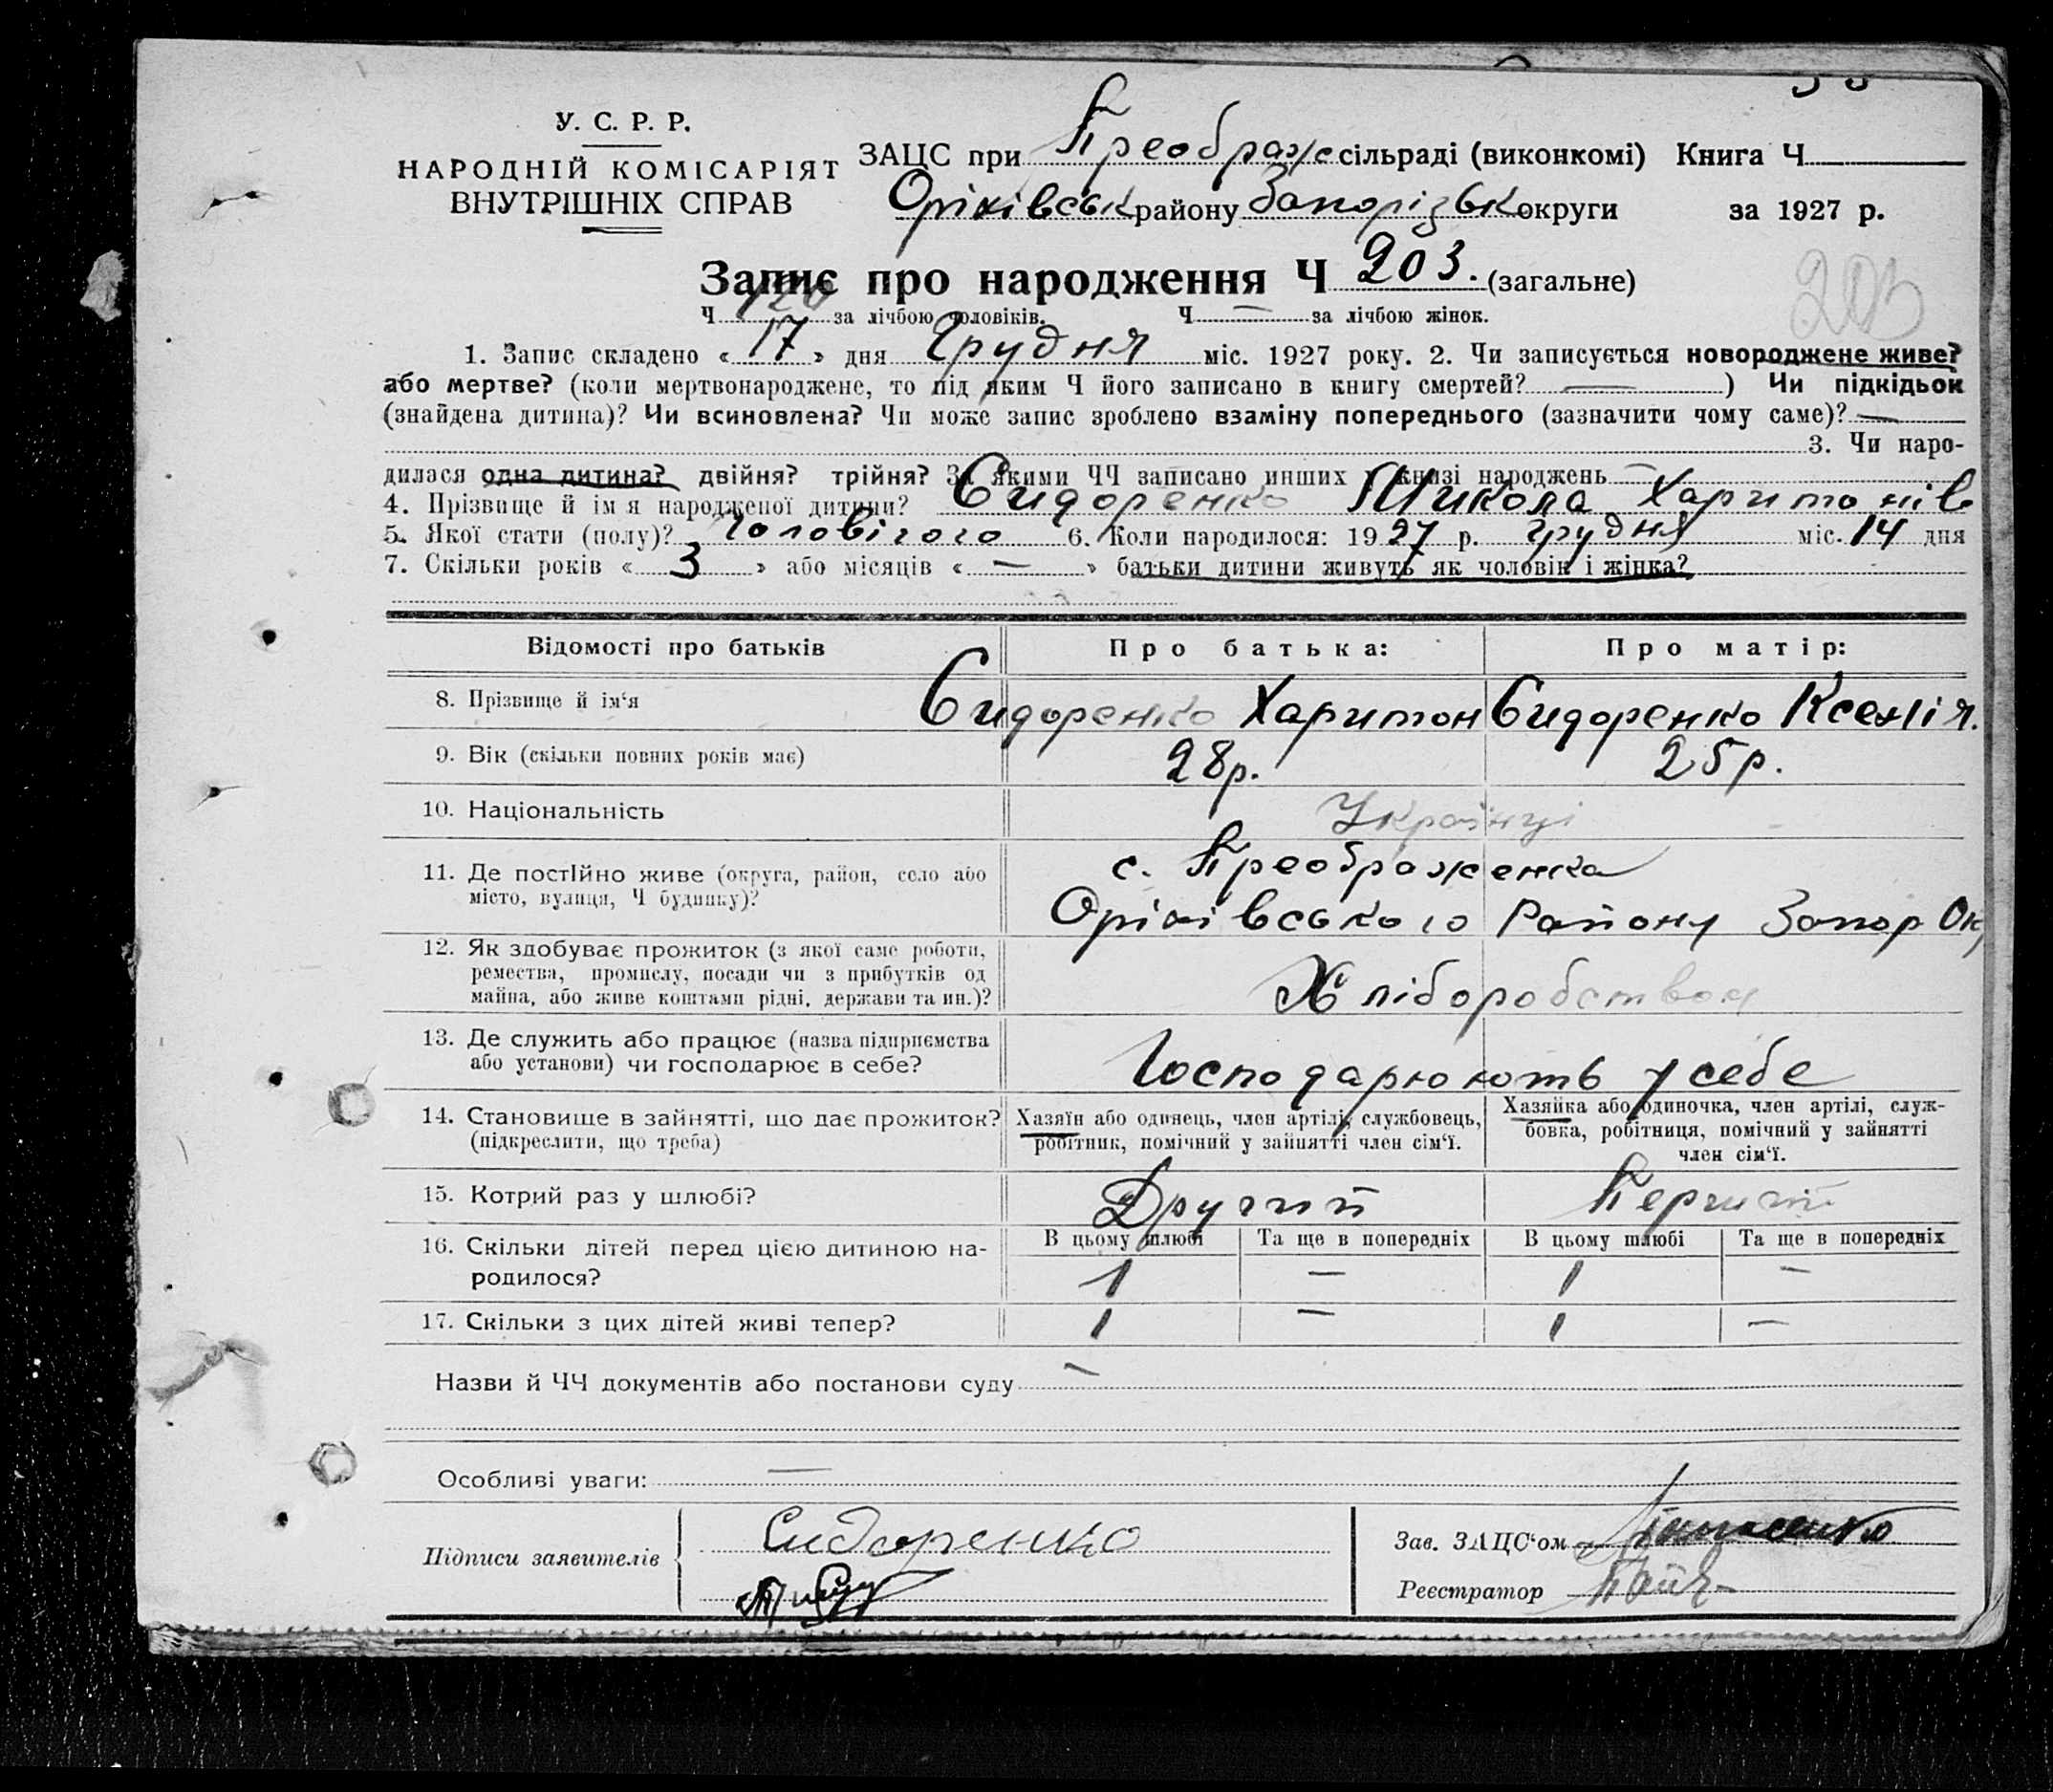 У. С. Р. Р.
НАРОДНІЙ КОМІСАРІЯТ
ВНУТРІШНІХ СПРАВ
ЗАЦС при Преображ сільраді (виконкомі) Книга Ч
Оріхівськ району Запорізьк округи за 1927 р.
Запис про народження Ч 203. (загальне)
203
Ч 120 за лічбою чоловіків. Ч — за лічбою жінок.
1. Запис складено « 17 » дня Грудня міс. 1927 року. 2. Чи записується новороджене живе?
або мертве? (коли мертвонароджене, то під яким Ч його записано в книгу смертей? — ) Чи підкідьок
(знайдена дитина)? Чи всиновлена? Чи може запис зроблено взаміну попереднього (зазначити чому саме)? —
3. Чи наро-
дилася одна дитина? двійня? трійня? За якими ЧЧ записано инших у книзі народжень —
4. Прізвище й ім я народженої дитини? Сидоренко Микола Харитонів
5. Якої стати (полу)? Чоловічого 6. Коли народилося: 1927 р. грудня міс. 14 дня
7. Скільки років « 3 » або місяців « — » батьки дитини живуть як чоловік і жінка?
Відомості про батьків Про батька: Про матір:
8. Прізвище й ім‘я Сидоренко Харитон Сидоренко Ксенія.
9. Вік (скільки повних років має) 28р. 25р.
10. Національність Українці
11. Де постійно живе (округа, район, село або
місто, вулиця, Ч будинку)?
с. Преображенка
Оріхівського Району Запор Ок
12. Як здобуває прожиток (з якої саме роботи,
ремества, промислу, посади чи з прибутків од
майна, або живе коштами рідні, держави та ин.)?
Хліборобством
13. Де служить або працює (назва підприємства
або установи) чи господарює в себе?
Господарюють у себе
14. Становище в зайнятті, що дає прожиток?
(підкреслити, що треба)
Хазяїн або одинець, член артілі, службовець,
робітник, помічний у зайнятті член сім‘ї.
Хазяйка або одиночка, член артілі, служ-
бовка, робітниця, помічний у зайнятті
член сім‘ї.
15. Котрий раз у шлюбі? Другий Перший
16. Скільки дітей перед цією дитиною на-
родилося?
В цьому шлюбі Та ще в попередніх В цьому шлюбі Та ще в попередніх
1 — 1 —
17. Скільки з цих дітей живі тепер? 1 — 1 —
Назви й ЧЧ документів або постанови суду —
Особливі уваги: —
Підписи заявителів Сидоренко
Зав. ЗАЦС‘ом
Реєстратор